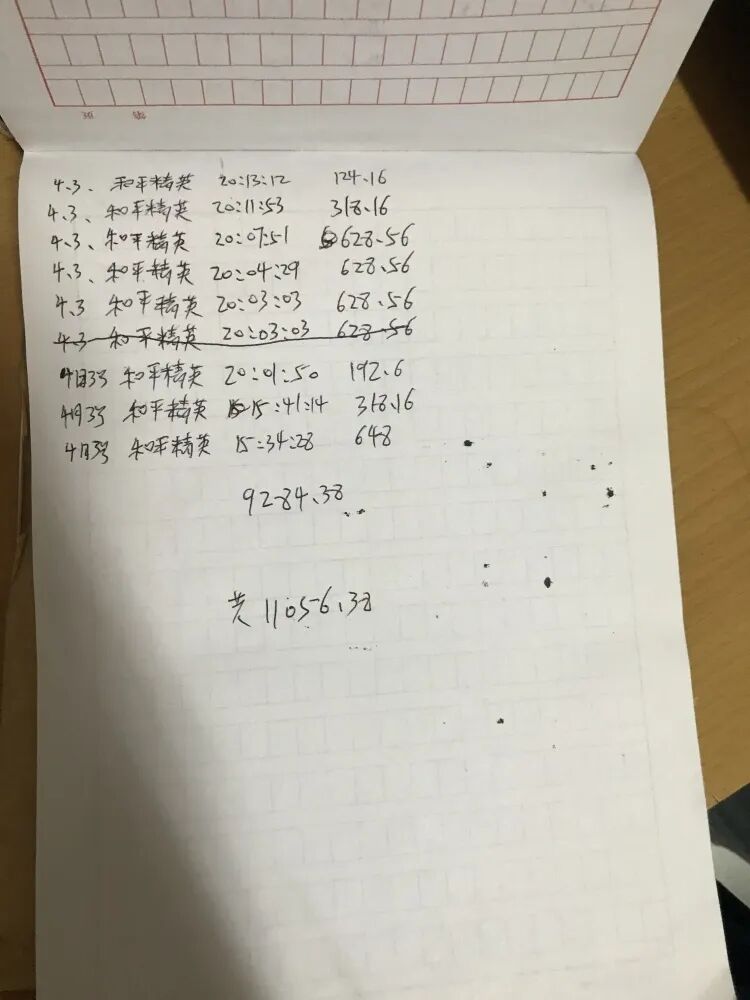 4.3、和平精英 20:13:12 124.16
4.3、和平精英 20:11:53 318.16
4.3、和平精英 20:07:51 628.56
4.3、和平精英 20:04:29 628.56
4.3 和平精英 20:03:03 628.56
4.3 和平精英 20:03:03 628.56
4月3号 和平精英 20:01:50 192.6
4月3号 和平精英 15:41:14 318.16
4月3号 和平精英 15:34:28 648
9284.38
共11056.38